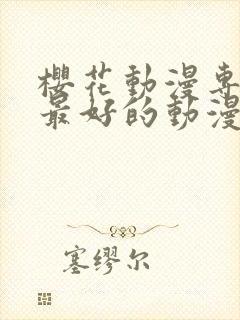 櫻花動漫專
最好的動漫
塞缪尔